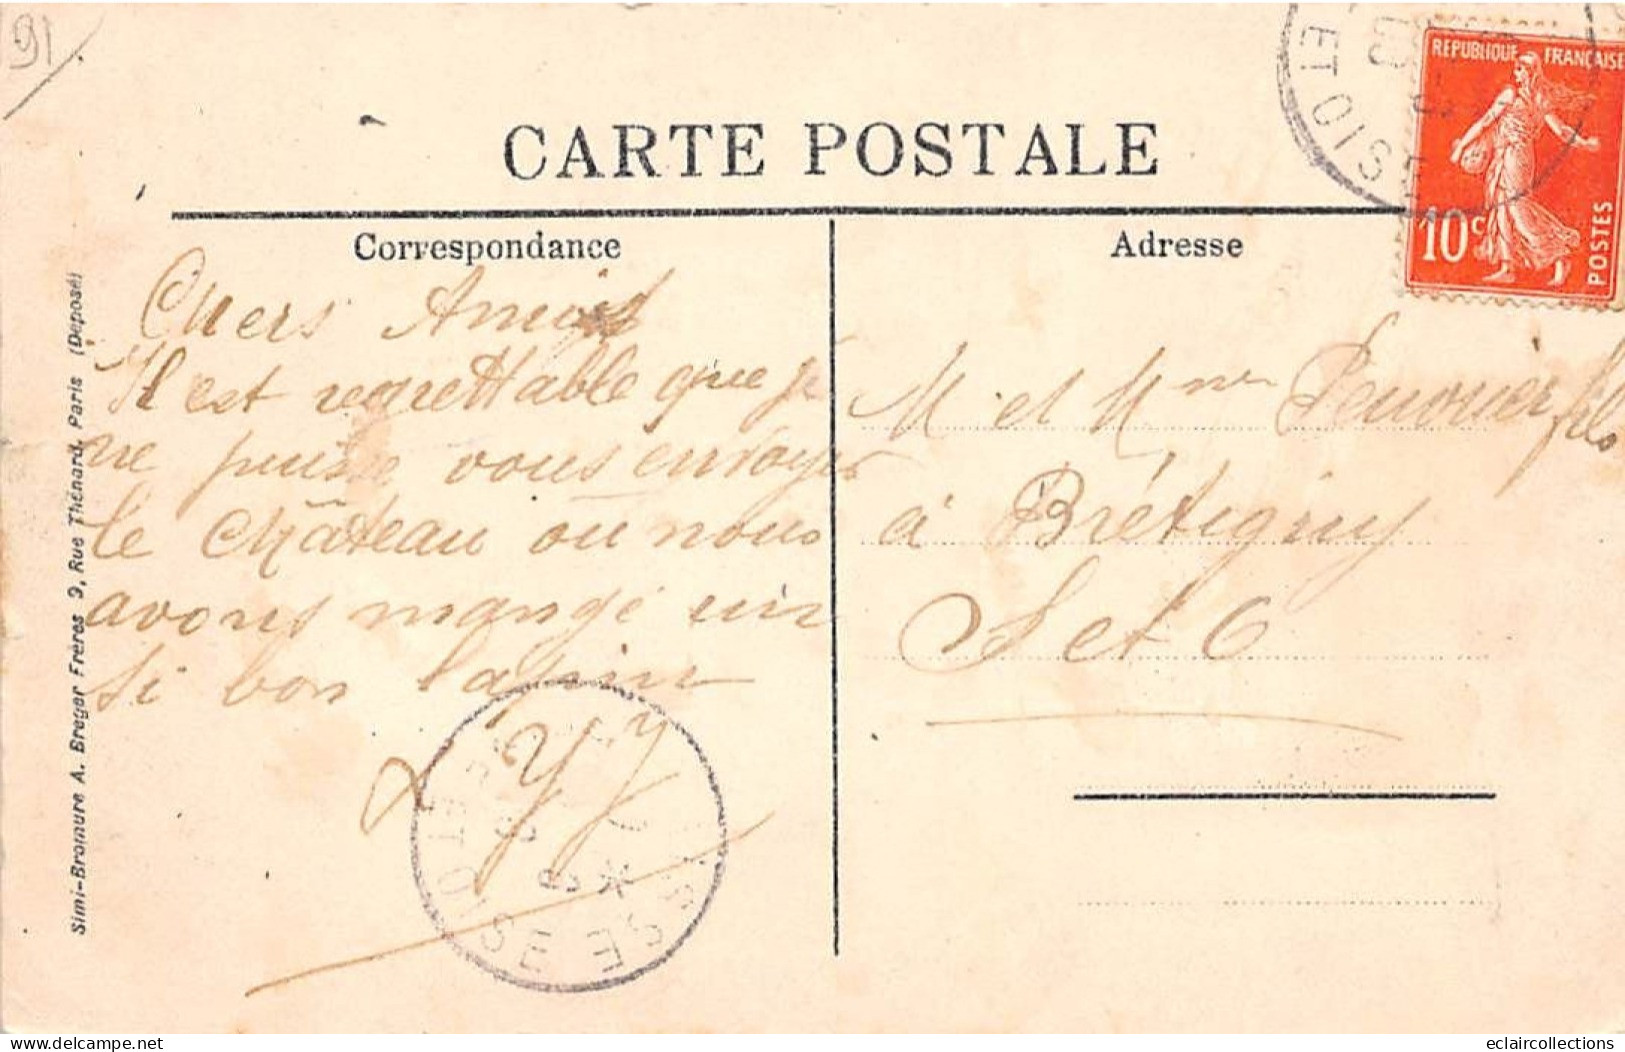 91
CARTE POSTALE
REPUBLIQUE FRANÇAISE
10c
POSTES
ET OISE
Correspondance
Adresse
Chers Amis
Il est regrettable que je
ne puisse vous envoyer
le Château où nous
avons mangé un
si bon lapin
M et Mme fils
à Brétigny
S et O
ET OISE
Simi-Bromure A. Breger Frères 9, Rue Thénard, Paris (Déposé)
eclaircollections